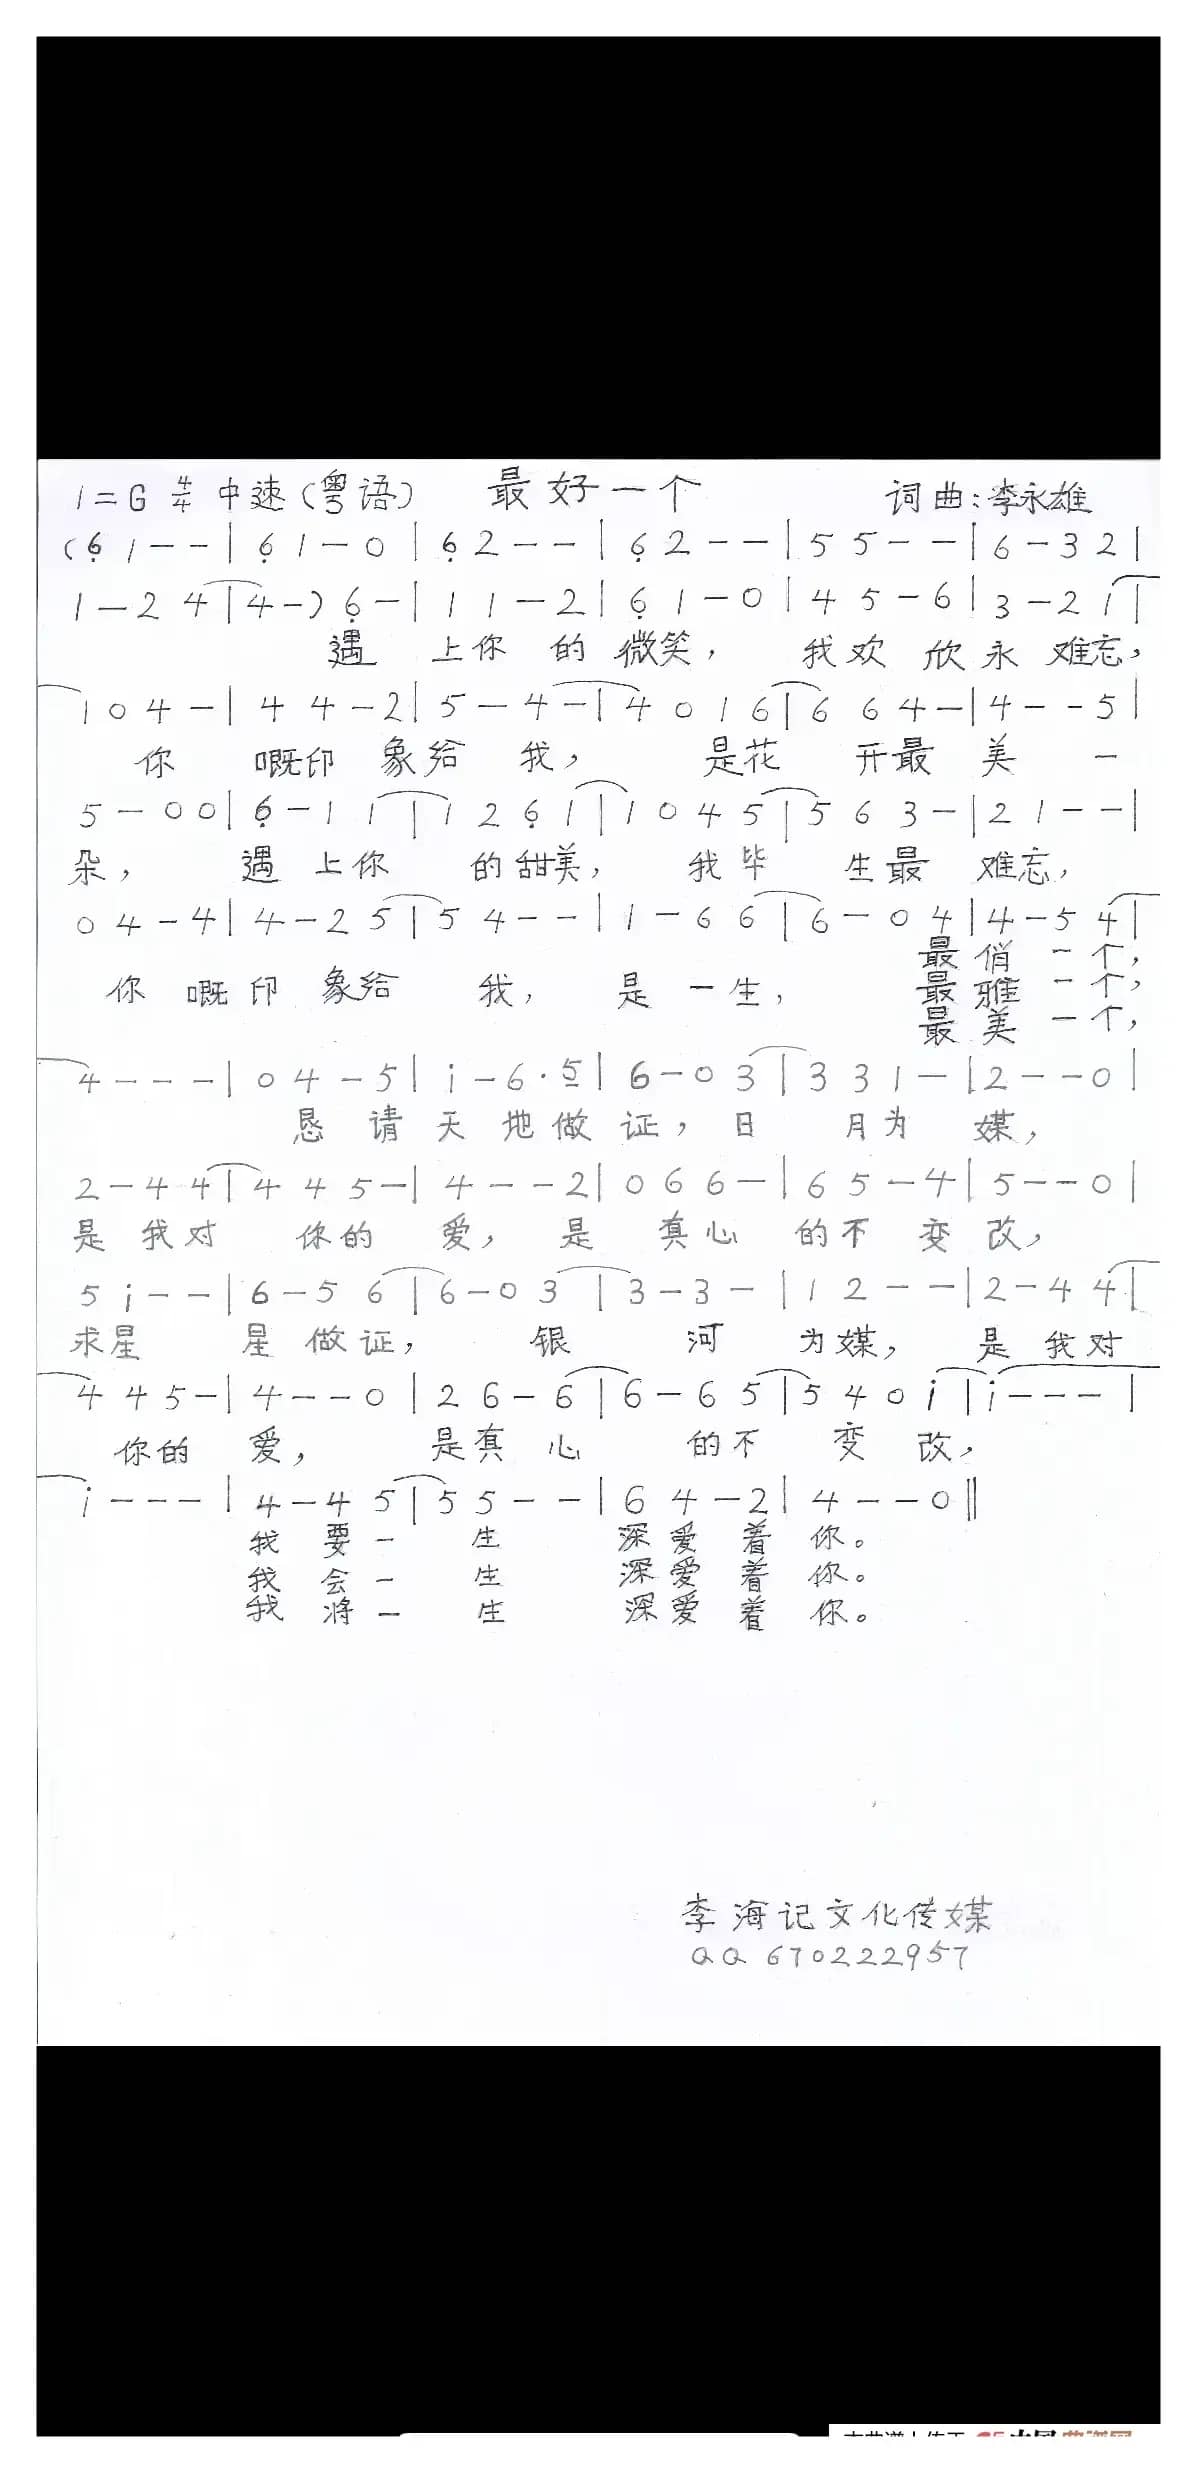 1=G 4/4 中速(粤语) 最好一个 词曲:李永雄
(6̣ 1 - - | 6̣ 1 - 0 | 6̣ 2 - - | 6̣ 2 - - | 5 5 - - | 6 - 3 2 |
1 - 2 4 | 4 - ) 6̣ - | 1 1 - 2 | 6̣ 1 - 0 | 4 5 - 6 | 3 - 2 1 |
遇 上你 的 微笑, 我欢 欣永难忘,
1 0 4 - | 4 4 - 2 | 5 - 4 - | 4 0 1 6 | 6 6 4 - | 4 - - 5 |
你 嘅印 象给 我, 是花 开最 美 一
5 - 0 0 | 6̣ - 1 1 | 1 2 6̣ 1 | 1 0 4 5 | 5 6 3 - | 2 1 - - |
朵, 遇 上你 的甜美, 我毕 生最 难忘,
0 4 - 4 | 4 - 2 5 | 5 4 - - | 1 - 6 6 | 6 - 0 4 | 4 - 5 4 |
最俏一个,
你 嘅印 象给 我, 是一生, 最雅一个,
最美一个,
4 - - - | 0 4 - 5 | i - 6 · 5 | 6 - 0 3 | 3 3 1 - | 2 - - 0 |
恳 请 天 地做 证, 日 月为 媒,
2 - 4 4 | 4 4 5 - | 4 - - 2 | 0 6 6 - | 6 5 - 4 | 5 - - 0 |
是 我对 你的 爱, 是 真心 的不 变 改,
5 i - - | 6 - 5 6 | 6 - 0 3 | 3 - 3 - | 1 2 - - | 2 - 4 4 |
求星 星 做证, 银 河 为媒, 是 我对
4 4 5 - | 4 - - 0 | 2 6 - 6 | 6 - 6 5 | 5 4 0 i | i - - - |
你的 爱, 是真 心 的不 变 改,
i - - - | 4 - 4 5 | 5 5 - - | 6 4 - 2 | 4 - - 0 ‖
我 要一 生 深爱 着 你。
我 会一 生 深爱 着 你。
我 将一 生 深爱 着 你。
李海记文化传媒
QQ 670222957